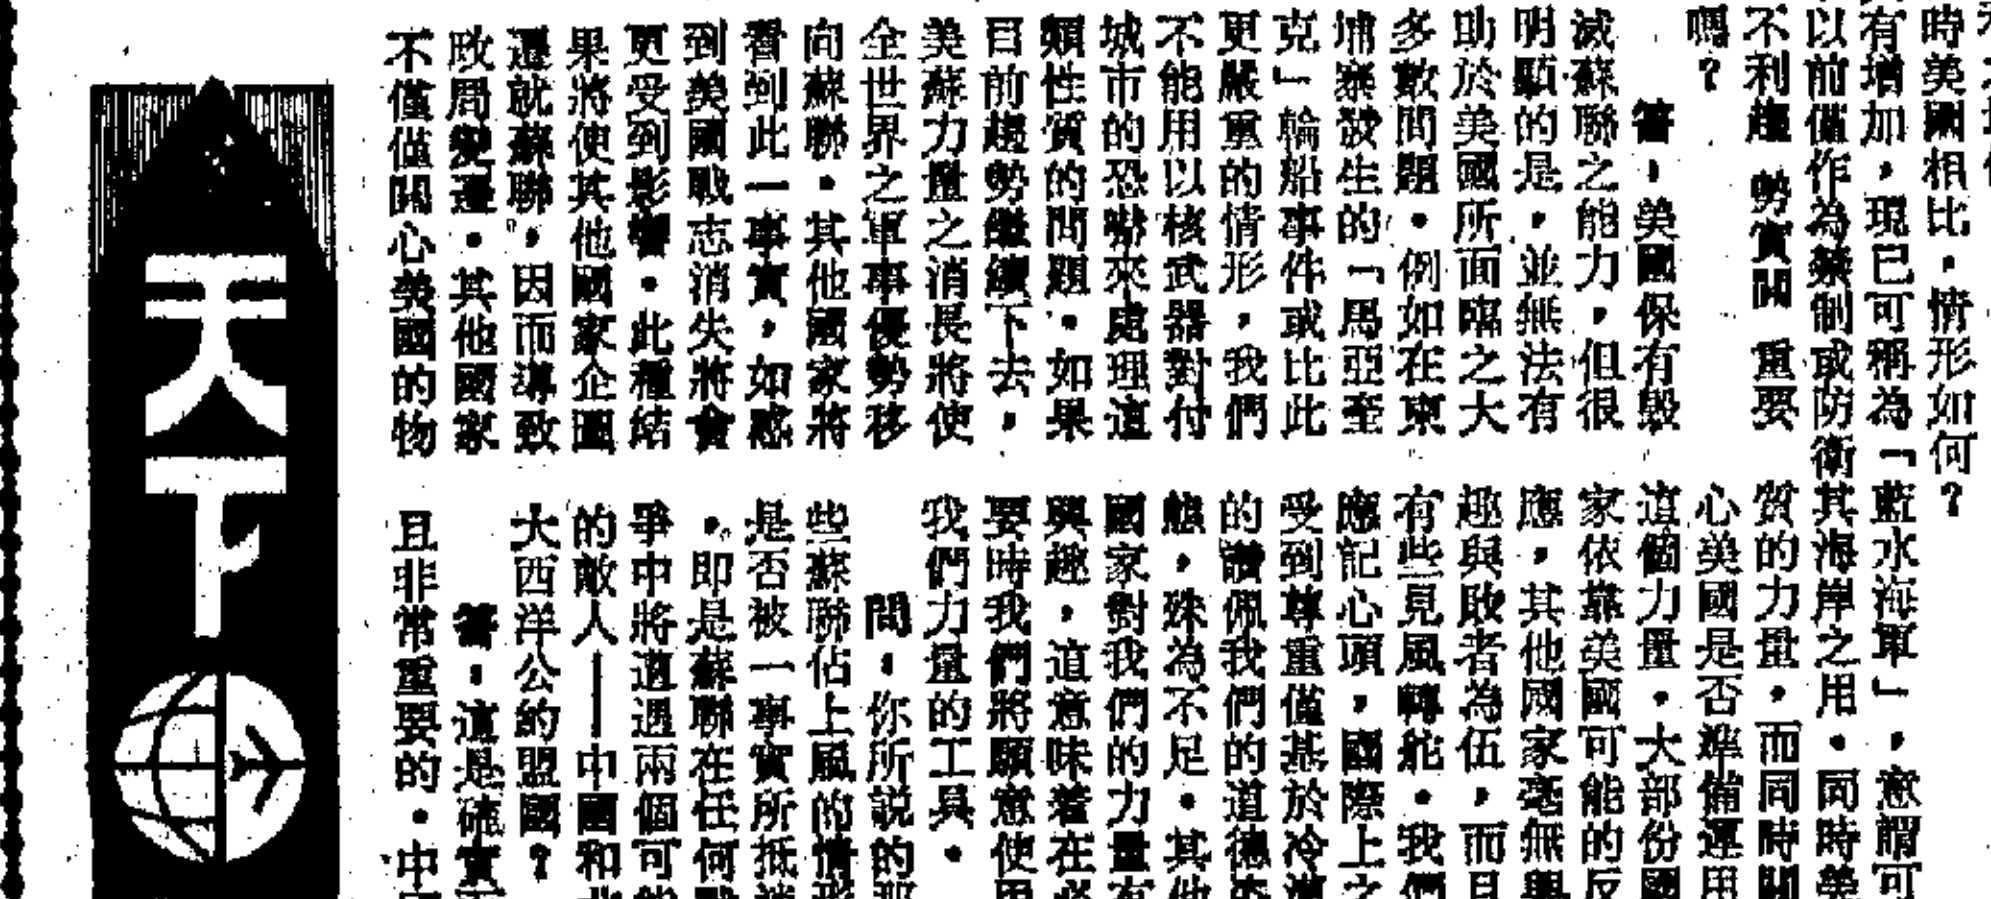 時美國相比,情形如何?
有增加,現已可稱為「藍水海軍」,意謂可
以前僅作為禁制或防衛其海岸之用。同時美
不利趨勢實關重要
嗎?
答:美國保有毀
滅蘇聯之能力,但很
明顯的是,並無法有
助於美國所面臨之大
多數問題。例如在東
埔寨發生的「馬亞圭
克」輪船事件或比此
更嚴重的情形,我們
不能用以核武器對付
城市的恐嚇來處理這
類性質的問題。如果
目前趨勢繼續下去,
美蘇力量之消長將使
全世界之軍事優勢移
向蘇聯。其他國家將
看到此一事實,如感
到美國戰志消失將會
更受到影響。此種結
果將使其他國家企圖
遷就蘇聯,因而導致
政局變遷。其他國家
不僅僅關心美國的物
質的力量,而同時關
心美國是否準備運用
這個力量。大部份國
家依靠美國可能的反
應,其他國家毫無興
趣與敗者為伍,而且
有些見風轉舵。我們
應記心頭,國際上之
受到尊重僅基於冷
的讚佩我們的道德
態,殊為不足。其他
國家對我們的力量有
興趣,這意味着在必
要時我們將願意使用
我們力量的工具。
問:你所說的那
些蘇聯佔上風的情形
是否被一事實所抵
,即是蘇聯在任何戰
爭中將遭遇兩個可能
的敵人——中國和北
大西洋公約盟國?
答:這是確實而
且非常重要的。中
天下